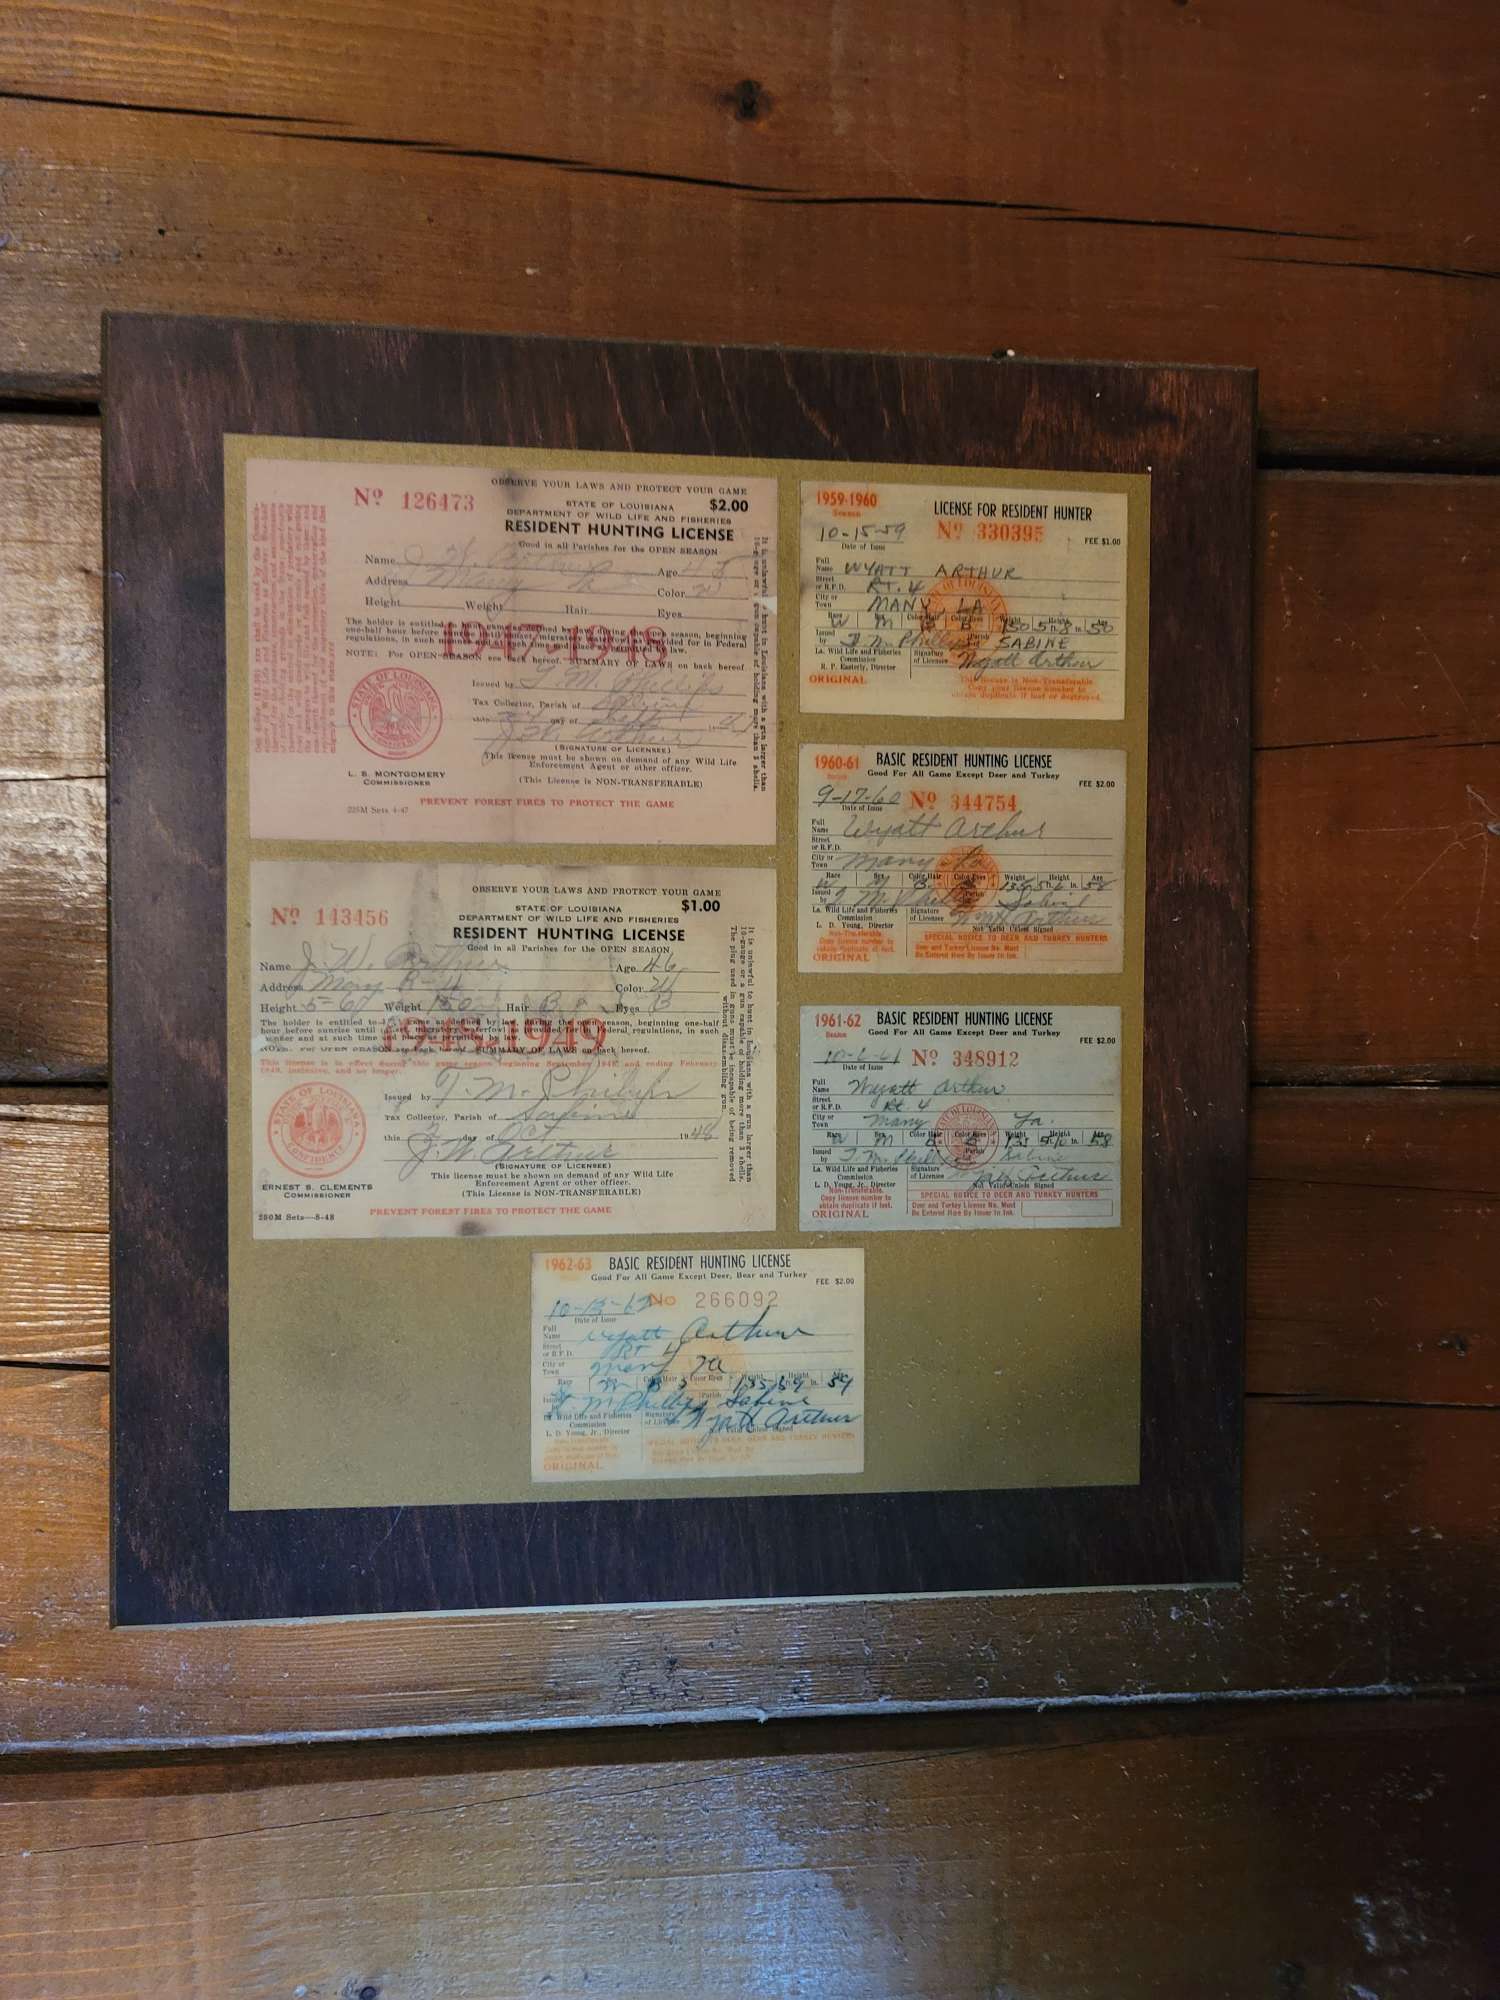 Nº 126473
OBSERVE YOUR LAWS AND PROTECT YOUR GAME
STATE OF LOUISIANA $2.00
DEPARTMENT OF WILD LIFE AND FISHERIES
RESIDENT HUNTING LICENSE
Good in all Parishes for the OPEN SEASON
Name J. W. Arthur Age
Address Many La Color W
Height Weight Hair Eyes
1947-1948
NOTE: For OPEN SEASON see back hereof. SUMMARY OF LAWS on back hereof.
Issued by T. M. Phillips
Tax Collector, Parish of Sabine
this day of Sept
J. W. Arthur
(SIGNATURE OF LICENSEE)
This license must be shown on demand of any Wild Life
Enforcement Agent or other officer.
(This License is NON-TRANSFERABLE)
STATE OF LOUISIANA
L. S. MONTGOMERY
COMMISSIONER
225M Sets 4-47
PREVENT FOREST FIRES TO PROTECT THE GAME
It is unlawful to hunt in Louisiana with a gun larger than
10-gauge or a gun capable of holding more than 3 shells.
OBSERVE YOUR LAWS AND PROTECT YOUR GAME
Nº 143456
STATE OF LOUISIANA $1.00
DEPARTMENT OF WILD LIFE AND FISHERIES
RESIDENT HUNTING LICENSE
Good in all Parishes for the OPEN SEASON
Name J. W. Arthur Age 46
Address Many R-4 Color W
Height 5-6 Weight 150 Hair B Eyes B
1948-1949
NOTE: For OPEN SEASON see back hereof. SUMMARY OF LAWS on back hereof.
Issued by T. M. Phillips
Tax Collector, Parish of Sabine
this 2 day of Oct 1948
J. W. Arthur
(SIGNATURE OF LICENSEE)
This license must be shown on demand of any Wild Life
Enforcement Agent or other officer.
(This License is NON-TRANSFERABLE)
STATE OF LOUISIANA
CONFIDENCE
ERNEST S. CLEMENTS
COMMISSIONER
250M Sets—5-48
PREVENT FOREST FIRES TO PROTECT THE GAME
It is unlawful to hunt in Louisiana with a gun larger than
10-gauge or a gun capable of holding more than 3 shells.
The plug used in guns must be incapable of being removed
without disassembling gun.
1959-1960 LICENSE FOR RESIDENT HUNTER
Season
10-15-59 Nº 330395 FEE $1.00
Date of Issue
Full
Name WYATT ARTHUR
Street
or R.F.D. RT. 4
City or
Town MANY, LA
Race Sex Color Hair Color Eyes Weight Height Age
W M B B 150 5 ft. 8 in. 50
Issued
by T. M. Phillips Parish SABINE
La. Wild Life and Fisheries
Commission
R. P. Easterly, Director
Signature
of Licensee Wyatt Arthur
ORIGINAL
This license is Non-Transferable
Copy your license number to
obtain duplicate if lost or destroyed.
1960-61 BASIC RESIDENT HUNTING LICENSE
Season Good For All Game Except Deer and Turkey
FEE $2.00
9-17-60 Nº 344754
Date of Issue
Full
Name Wyatt Arthur
Street
or R.F.D.
City or
Town Many La
Race Sex Color Hair Color Eyes Weight Height Age
W M B 135 5 ft. 6 in. 58
Issued
by T. M. Phillips Parish Sabine
La. Wild Life and Fisheries
Commission
L. D. Young, Director
Signature
of Licensee Wyatt Arthur
Not Valid Unless Signed
Non-Transferable
Copy license number to
obtain duplicate if lost.
ORIGINAL
SPECIAL NOTICE TO DEER AND TURKEY HUNTERS
Deer and Turkey License No. Must
Be Entered Here By Issuer In Ink.
1961-62 BASIC RESIDENT HUNTING LICENSE
Season Good For All Game Except Deer and Turkey
FEE $2.00
10-6-61 Nº 348912
Date of Issue
Full
Name Wyatt Arthur
Street
or R.F.D. Rt 4
City or
Town Many La.
Race Sex Color Hair Color Eyes Weight Height Age
W M B B 135 5 ft. 10 in. 58
Issued
by T. M. Phillips Parish Sabine
La. Wild Life and Fisheries
Commission
L. D. Young, Jr., Director
Signature
of Licensee Wyatt Arthur
Not Valid Unless Signed
Non-Transferable
Copy license number to
obtain duplicate if lost.
ORIGINAL
SPECIAL NOTICE TO DEER AND TURKEY HUNTERS
Deer and Turkey License No. Must
Be Entered Here By Issuer In Ink.
1962-63 BASIC RESIDENT HUNTING LICENSE
Good For All Game Except Deer, Bear and Turkey
FEE $2.00
No 266092
Date of Issue
Full
Name Wyatt Arthur
Street
or R.F.D. Rt 4
City or
Town Many La
Race Color Hair Color Eyes Weight Height Age
M B 135 5 ft. 9 in. 59
Issued
T. M. Phillips Parish Sabine
La. Wild Life and Fisheries
Commission
L. D. Young, Jr., Director
Signature
of Licensee Wyatt Arthur
Not Valid Unless Signed
ORIGINAL
SPECIAL NOTICE TO DEER, BEAR AND TURKEY HUNTERS